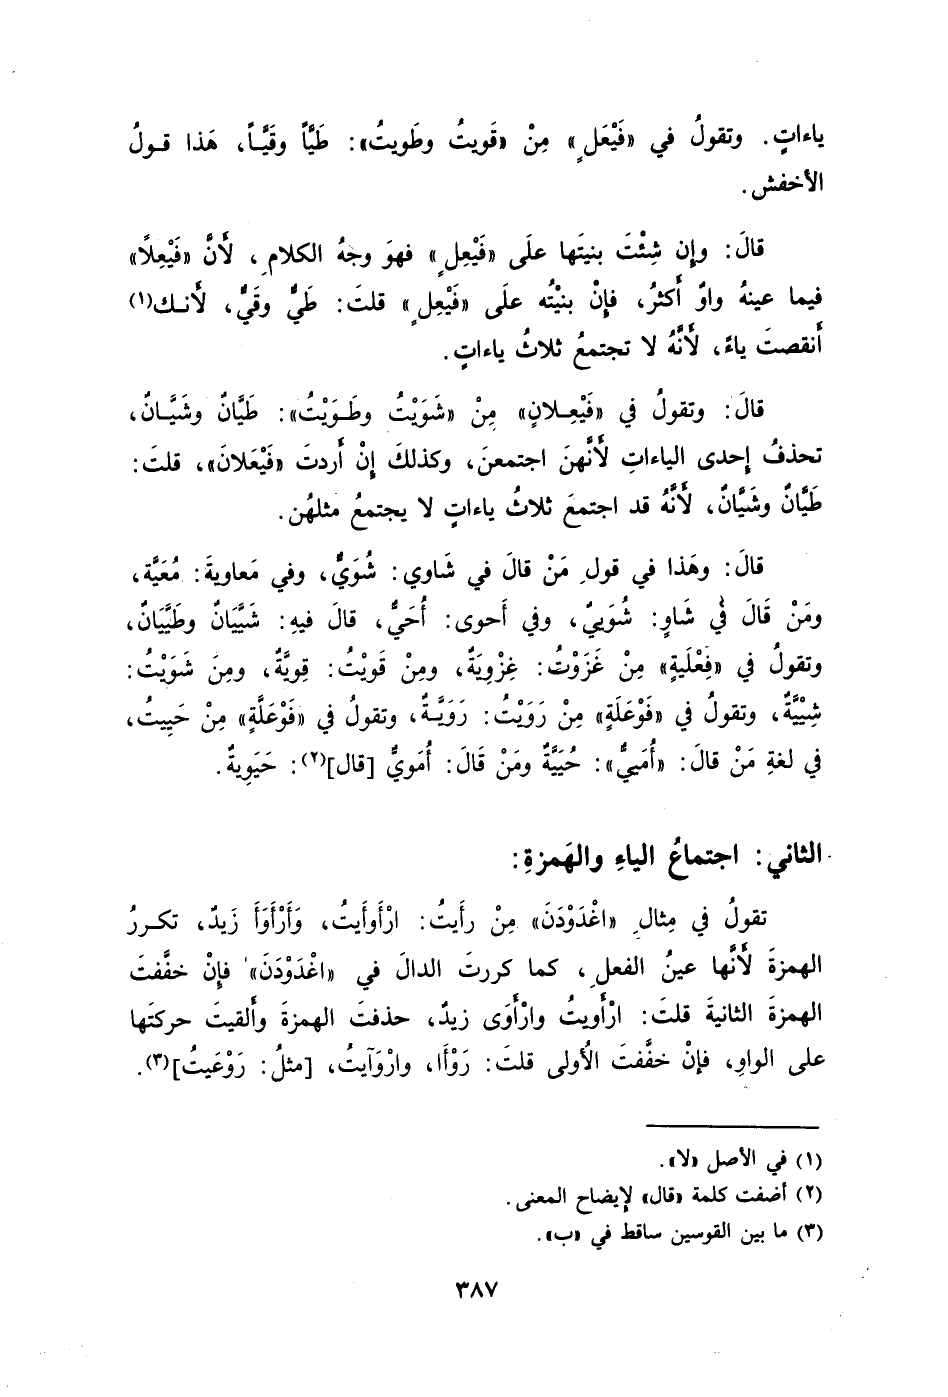 ياءاتٍ. وتقولُ في «فَيْعَلٍ» مِنْ «قَويتُ وطَويتُ»: طَيَّاً وقَيَّاً، هَذا قولُ
الأخفش.
قالَ: وإن شِئْتَ بنيتَها علَى «فَيْعِلٍ» فهوَ وجهُ الكلامِ، لأَنَّ «فَيْعِلًا»
فيما عينهُ واوٌ أَكثرُ، فإنْ بنيْتُه علَى «فَيْعِلٍ» قلتَ: طَيٌّ وقَيٌّ، لأَنك(١)
أَنقصتَ ياءً، لأَنَّهُ لا تجتمعُ ثلاثُ ياءاتٍ.
قالَ: وتقولُ في «فَيْعِلانٍ» مِنْ «شَوَيْتُ وطَوَيْتُ»: طَيَّانٌ وشَيَّانٌ،
تحذفُ إحدى الياءاتِ لأَنَّهنَ اجتمعنَ، وكذلكَ إنْ أَردتَ «فَيْعَلانَ»، قلتَ:
طَيَّانٌ وشَيَّانٌ، لأَنَّهُ قد اجتمعَ ثلاثُ ياءاتٍ لا يجتمعُ مثلهُن.
قالَ: وهَذا في قولِ مَنْ قالَ في شَاوي: شُوَيٌّ، وفي مَعاويةَ: مُعَيَّة،
ومَنْ قَالَ في شَاوٍ: شُوَييٌ، وفي أَحوى: أُحَيٌّ، قالَ فيهِ: شَيَّيَانٌ وطَيَّيَانٌ،
وتقولُ في «فِعْلَيةٍ» مِنْ غَزَوْتُ: غِزْوِيَةٌ، ومِنْ قَويْتُ: قِويَّةٌ، ومِنَ شَوَيْتُ:
شِيْيَّةٌ، وتقولُ في «فَوْعَلَةٍ» مِنْ رَوَيْتُ: رَوَيَّةٌ، وتقولُ في «فَوْعَلَّةٍ» مِنْ حَيِيتُ،
في لغةِ مَنْ قالَ: «أُمَيِيٌّ»: حُيَيَّةٌ ومَنْ قَالَ: أُمَويٌّ [قال](٢): حَيَوِيةٌ.
الثاني: اجتماعُ الياءِ والهَمزةِ:
تقولُ في مِثالِ «اغْدَوْدَنَ» مِنْ رأَيتُ: ارْأَوأَيتُ، وَأَرْأَوَأَ زَيدٌ، تكررُ
الهمزةَ لأَنَّها عينُ الفعلِ، كما كررتَ الدالَ في «اغْدَوْدَنَ» فإنْ خفَّفتَ
الهمزةَ الثانيةَ قلتَ: ارْأَويتُ وارْأَوَى زيدٌ، حذفتَ الهمزةَ وأَلقيتَ حركتَها
على الواوِ، فإنْ خفَّفتَ الأُولى قلتَ: رَوْأَا، وارْوَآيتُ، [مثلُ: رَوْعَيتُ](٣).
(١) في الأصل «لا».
(٢) أضفت كلمة «قال» لإيضاح المعنى.
(٣) ما بين القوسين ساقط في «ب».
٣٨٧